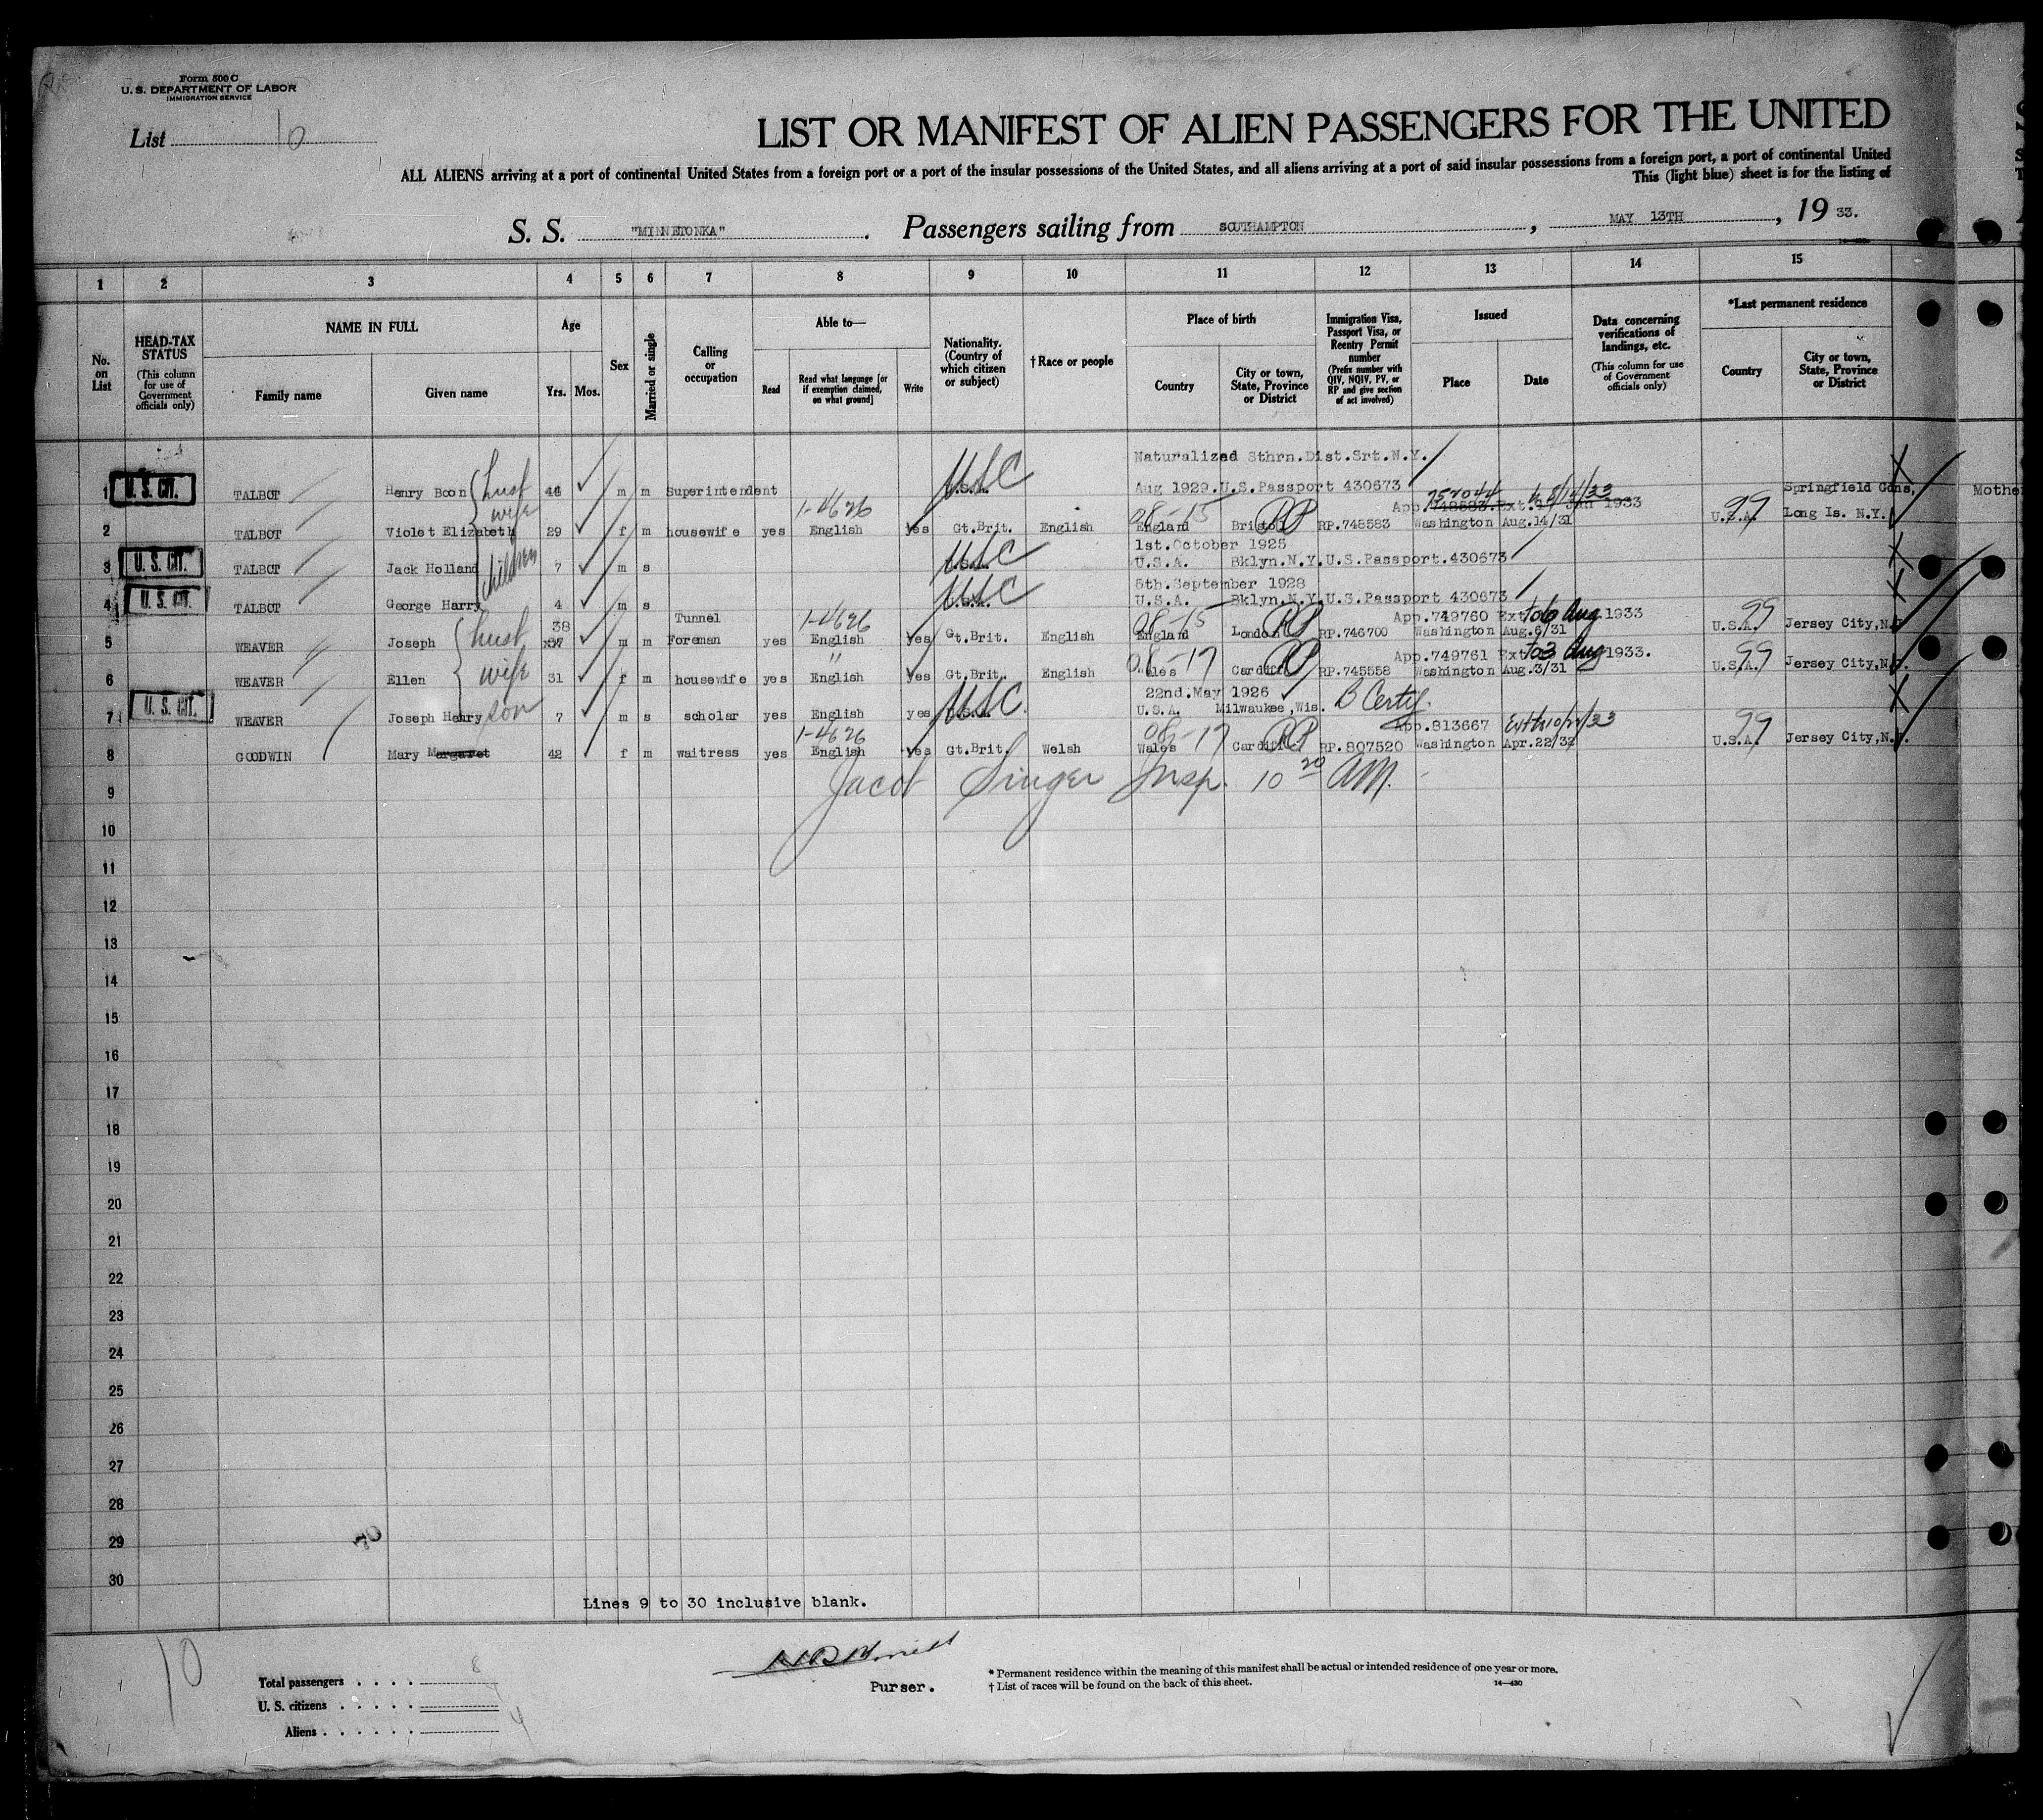 Form 500 C
U. S. DEPARTMENT OF LABOR
IMMIGRATION SERVICE
List 10
LIST OR MANIFEST OF ALIEN PASSENGERS FOR THE UNITED
ALL ALIENS arriving at a port of continental United States from a foreign port or a port of the insular possessions of the United States, and all aliens arriving at a port of said insular possessions from a foreign port, a port of continental United
This (light blue) sheet is for the listing of
S. S. "MINNETONKA". Passengers sailing from SOUTHAMPTON, MAY 13TH, 19 33.
1 2 3 4 5 6 7 8 9 10 11 12 13 14 15
No. on List
HEAD-TAX STATUS (This column for use of Government officials only)
NAME IN FULL
Family name Given name
Age
Yrs. Mos.
Sex
Married or single
Calling or occupation
Able to—
Read Read what language [or if exemption claimed, on what ground] Write
Nationality. (Country of which citizen or subject)
† Race or people
Place of birth
Country City or town, State, Province or District
Immigration Visa, Passport Visa, or Reentry Permit number (Prefix number with QIV, NQIV, PV, or RP and give section of act involved)
Issued
Place Date
Data concerning verifications of landings, etc. (This column for use of Government officials only)
*Last permanent residence
Country City or town, State, Province or District
Naturalized Sthrn.Dist.Srt.N.Y.
1 U. S. CIT. TALBOT Henry Boon husb m m Superintendent USC U.S.A. Aug 1929.U.S.Passport 430673 Springfield Gdns, Mothe
1-4626 App. 748583 752044 Ext. Jan 1933 8/14/33
2 TALBOT Violet Elizabeth wife 29 f m housewife yes English yes Gt.Brit. English 08-15 England Bristol RP RP.748583 Washington Aug.14/31 99 U.S.A. Long Is. N.Y.
1st.October 1925
3 U. S. CIT. TALBOT Jack Holland children 7 m s USC U.S.A. U.S.A. Bklyn.N.Y.U.S.Passport.430673
5th.September 1928
4 U. S. CIT. TALBOT George Harry 4 m s USC U.S.A. U.S.A. Bklyn.N.Y.U.S.Passport 430673
38 Tunnel 1-4626 App.749760 Ext to 6 Aug 1933
5 WEAVER Joseph husb m m Foreman yes English yes Gt.Brit. English 08-15 England London RP RP.746700 Washington Aug.6/31 99 U.S.A. Jersey City,N.J.
" App.749761 Ext to 3 Aug 1933.
6 WEAVER Ellen wife 31 f m housewife yes English yes Gt.Brit. English 08-17 Wales Cardiff RP RP.745558 Washington Aug.3/31 99 U.S.A. Jersey City,N.J.
22nd.May 1926 B Certif.
7 U. S. CIT. WEAVER Joseph Henry son 7 m s scholar yes English yes USC U.S.A. U.S.A. Milwaukee,Wis.
1-4626 App.813667 Ext to 10/22/33
8 GOODWIN Mary Margaret 42 f m waitress yes English yes Gt.Brit. Welsh 08-17 Wales Cardiff RP RP.807520 Washington Apr.22/32 99 U.S.A. Jersey City,N.J.
9 Jacob Singer Insp. 10 20 AM.
10
11
12
13
14
15
16
17
18
19
20
21
22
23
24
25
26
27
28
29
30
Lines 9 to 30 inclusive blank.
10
Total passengers 8
U. S. citizens
Aliens 4
Purser.
* Permanent residence within the meaning of this manifest shall be actual or intended residence of one year or more.
† List of races will be found on the back of this sheet.
14—430